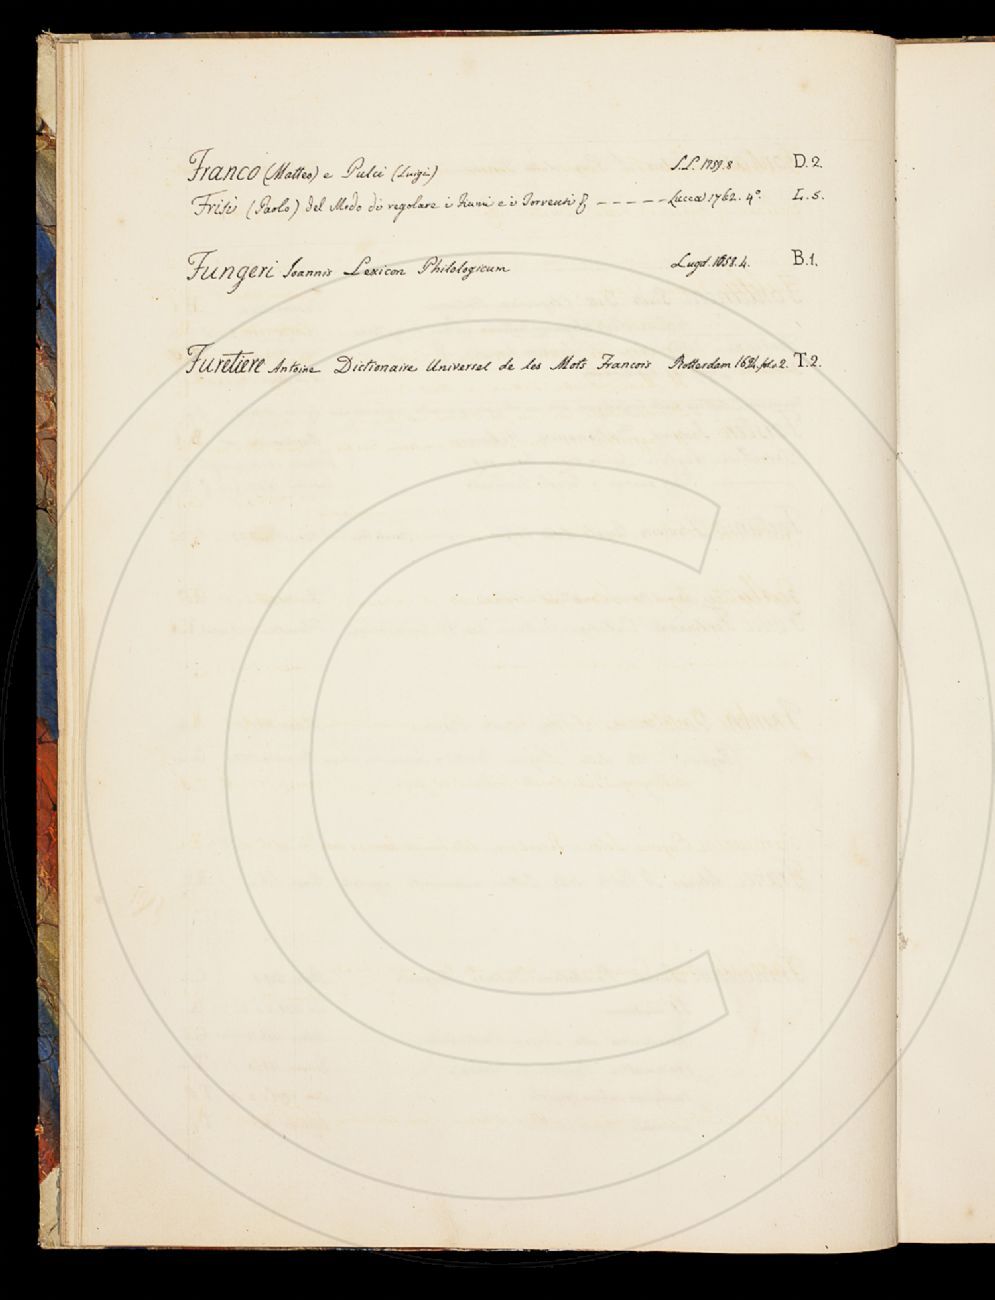 Franco (Matteo) e Pulci (Luigi) S.L. 1759. 8 D. 2.
Frisi (Paolo) del Modo di regolare i Fiumi e i Torrenti – – – – – Lucca 1762. 4º. L. 5.
Fungeri Joannis Lexicon Philologicum Lugd. 1658. 4. B. 1.
Furetiere Antoine Dictionaire Universel de les Mots Francois Rotterdam fol. v. 2. T. 2.